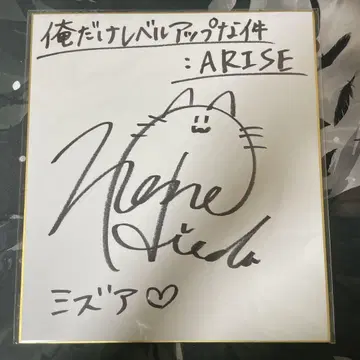 俺だけレベルアップな件
:ARISE
Nene
Hieda
ミズア♡